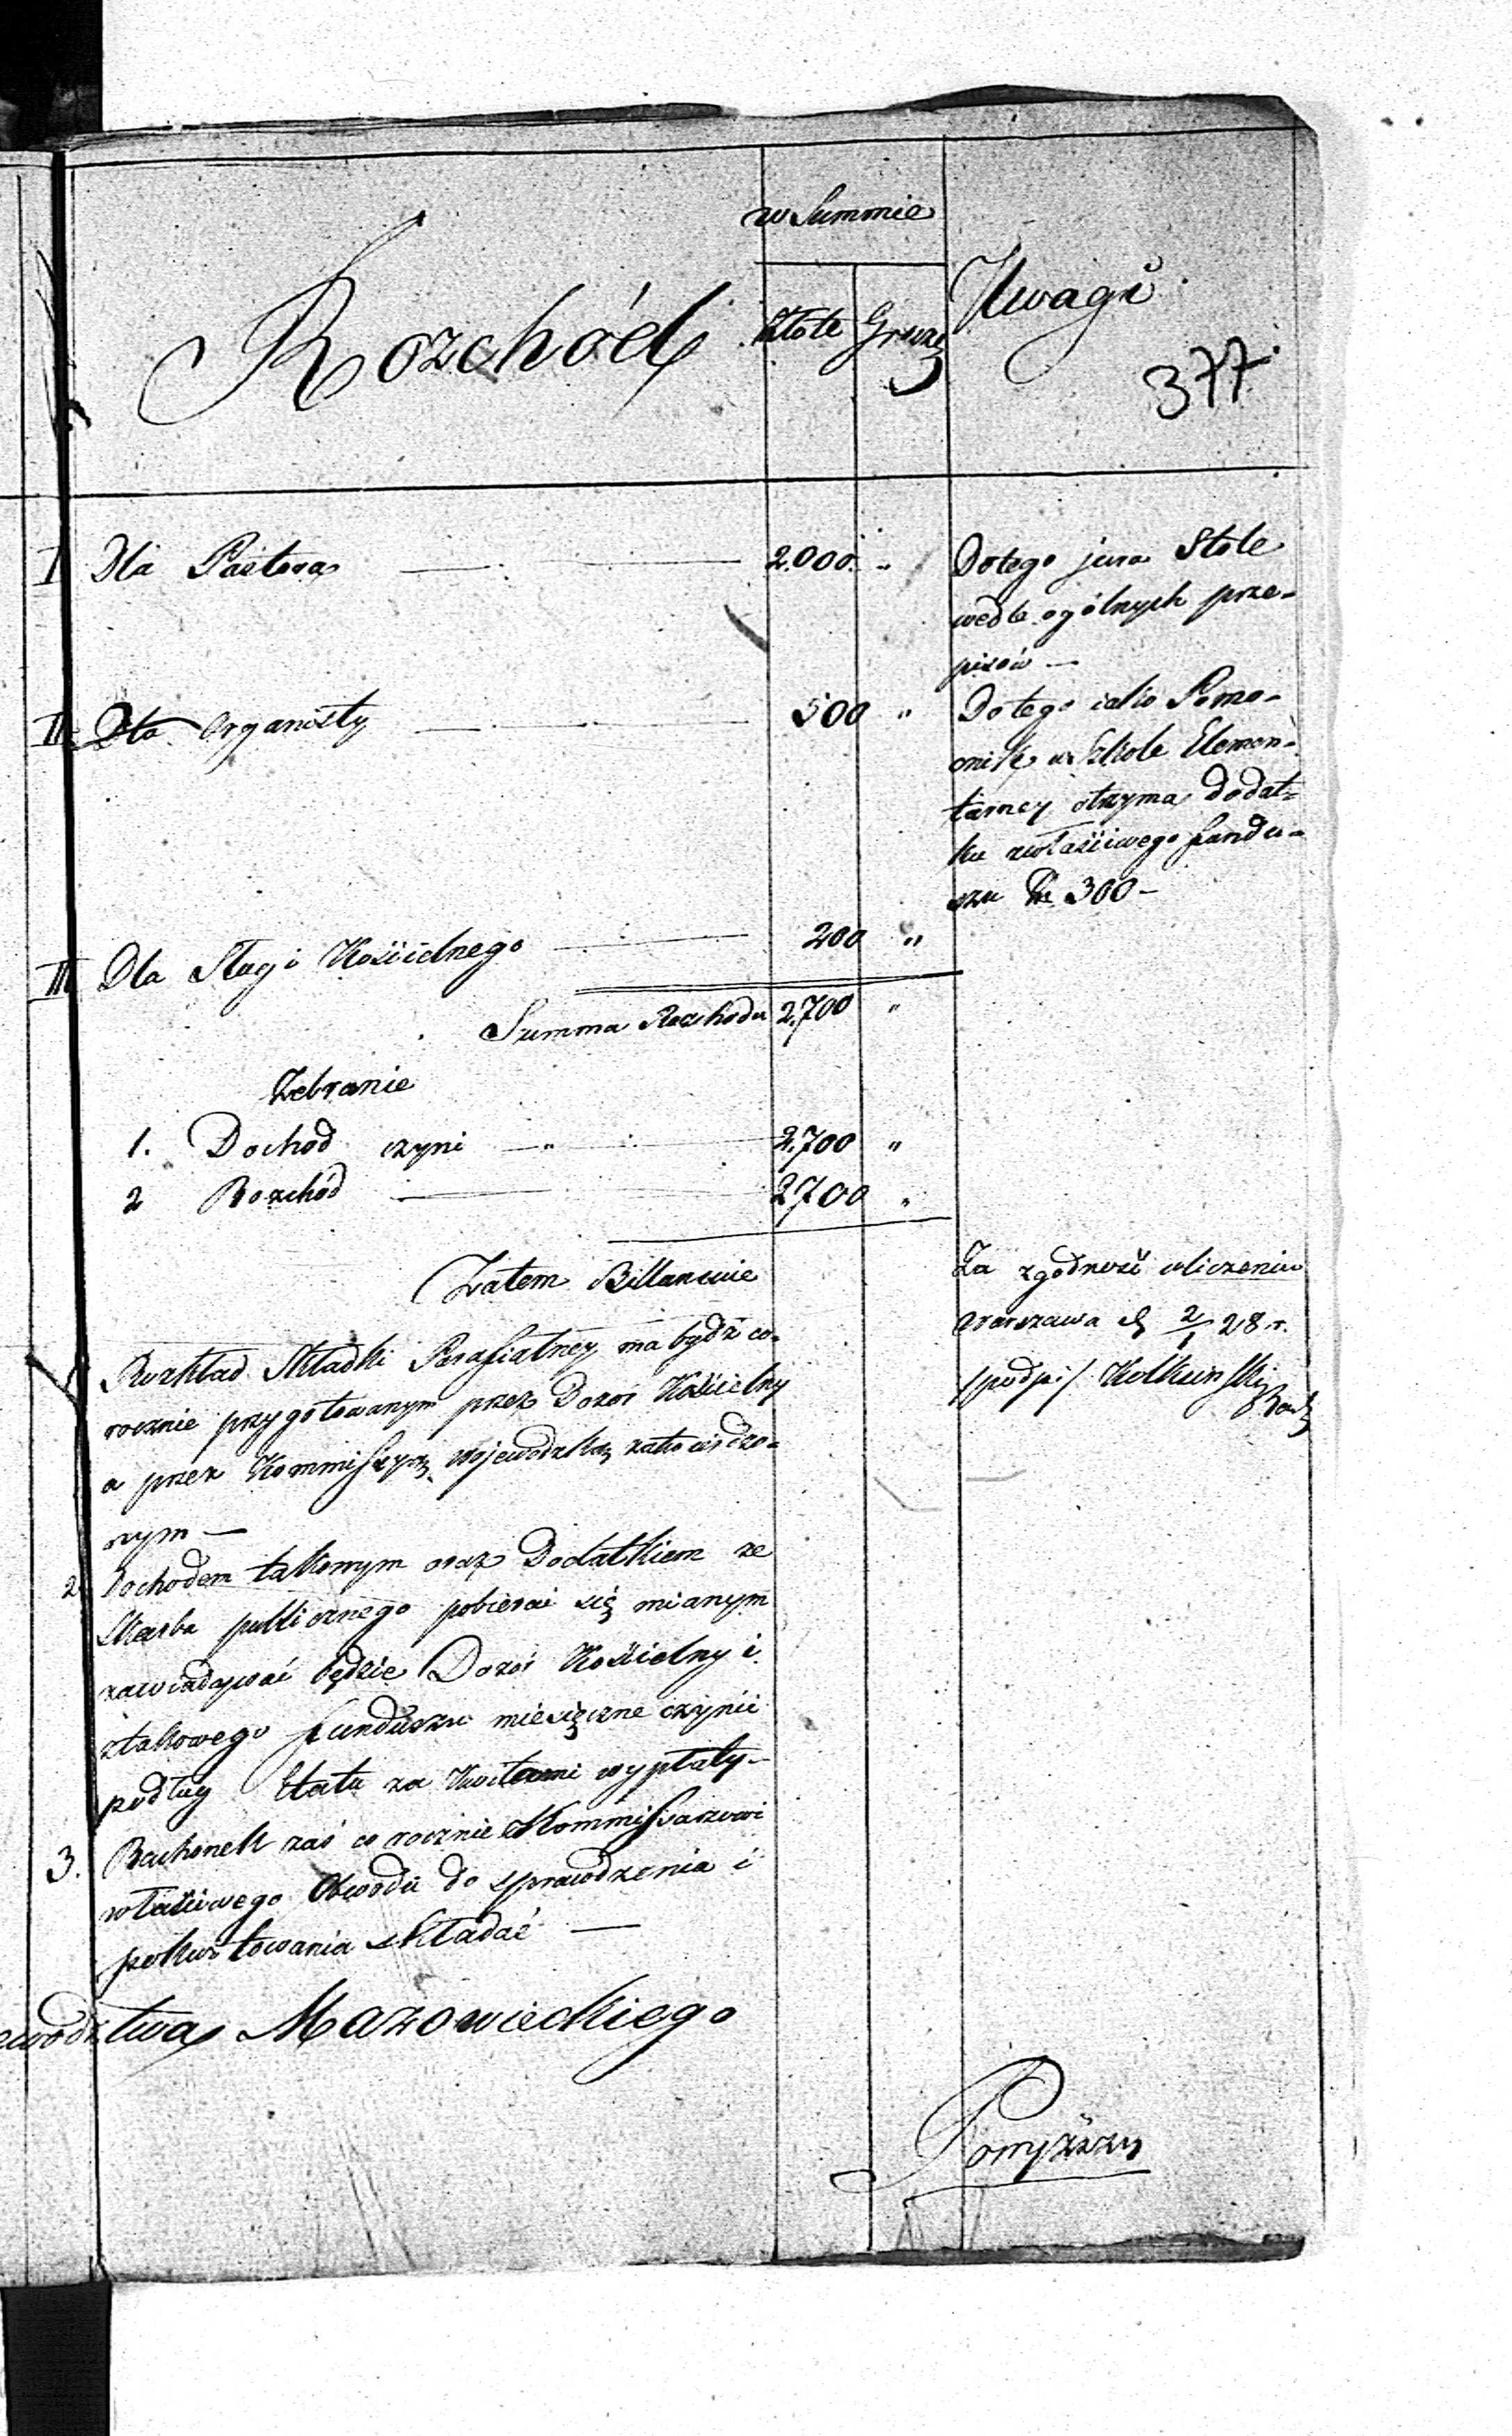 w Summie
Rozchód
Złote Grosze
Uwagi
377
I Dla Pastora 2.000 "
Do tego jura Stole
wedle ogólnych prze-
pisów —
II Dla Organisty 500 "
Do tego iako Pomo-
cnik w Szkole Elemen-
tarney otrzyma dodat-
ku z właściwego fundu-
szu 300 —
III Dla Sługi Kościelnego 200 "
Summa Rozchodu 2,700 "
Zebranie
1. Dochod czyni — " 2,700 "
2 Rozchód 2700 "
Zatem Billansuie
Za zgodność wliczeniu
Warszawa d 2/1 28 r.
/podpi/
Rozkład Składki Parafialney ma bydź co-
rocznie przygotowanym przez Dozór Kościelny
a przez Kommissyą Wojewodzką zatwierdzo-
nym —
2. Dochodem takowym oraz Dodatkiem ze
Skarbu publicznego pobierać się mianym
zawiadywać będzie Dozór Kościelny i
z takowego funduszu miesięczne czynić
podług Etatu za Kwitami wypłaty —
3. Rachunek zaś co rocznie Kommissarzowi
właściwego Obwodu do sprawdzenia i
pokwitowania składać —
ewodztwa Mazowieckiego
Powyższy